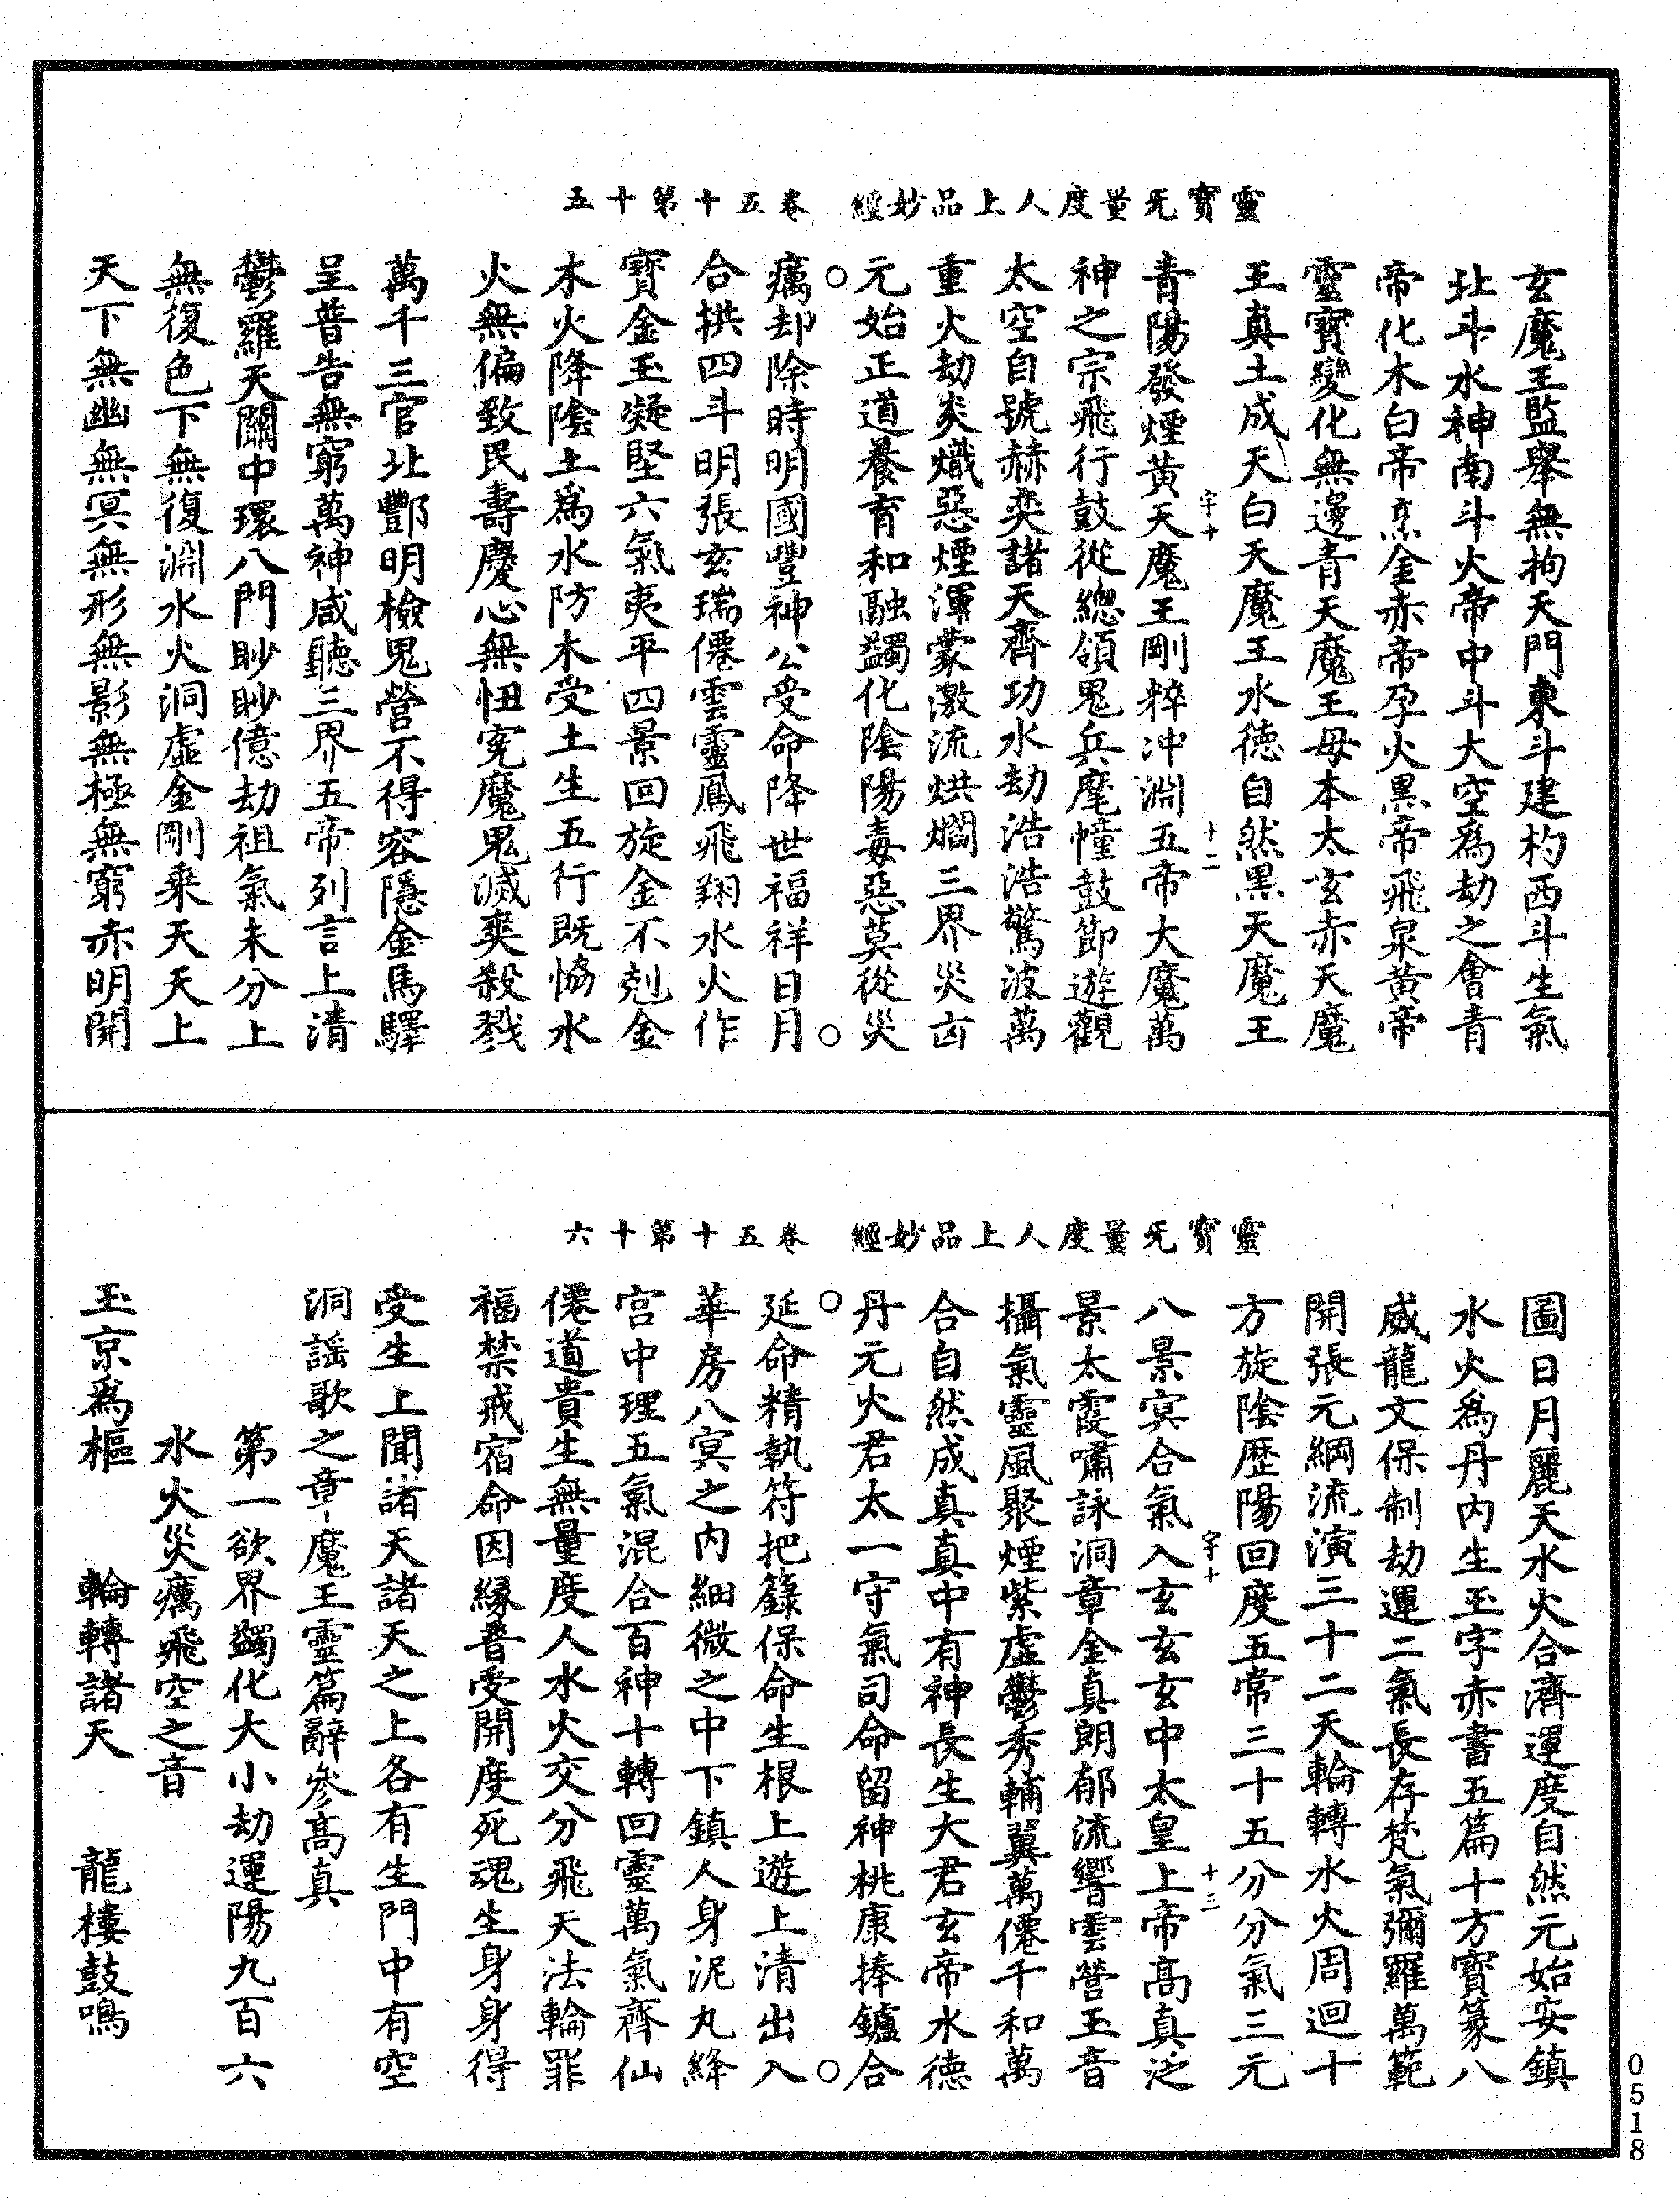 靈寶无量度人上品妙經　卷五十第十五
玄魔王監舉無拘天門東斗建杓西斗生氣
北斗水神南斗火帝中斗大空為劫之會青
帝化木白帝烹金赤帝孕火黑帝飛泉黃帝
靈寶變化無邊青天魔王母本太玄赤天魔
王真土成天白天魔王水德自然黑天魔王
宇十　十二
青陽發煙黃天魔王剛粹沖淵五帝大魔萬
神之宗飛行鼓從總領鬼兵麾幢鼓節遊觀
太空自號赫奕諸天齊功水劫浩浩驚波萬
重火劫炎熾惡煙渾蒙激流烘爛三界災凶
元始正道養育和融蠲化陰陽毒惡莫從災
癘却除時明國豐神公受命降世福祥日月
合拱四斗明張玄瑞僊雲靈鳳飛翔水火作
寶金玉凝堅六氣夷平四景回旋金不剋金
木火降陰土為水防木受土生五行既恊水
火無偏致民壽慶心無忸寃魔鬼滅爽殺戮
萬千三官北酆明檢鬼營不得容隱金馬驛
呈普告無窮萬神咸聽三界五帝列言上清
鬱羅天關中環八門眇眇億劫祖氣未分上
無復色下無復淵水火洞虛金剛乗天天上
天下無幽無冥無形無影無極無窮赤明開
靈寶无量度人上品妙經　卷五十第十六
圖日月麗天水火合濟運度自然元始安鎮
水火為丹內生玉字赤書五篇十方寶篆八
威龍文保制劫運二氣長存梵氣彌羅萬範
開張元綱流演三十二天輪轉水火周迴十
方旋陰歷陽回度五常三十五分分氣三元
宇十　十三
八景冥合氣入玄玄玄中太皇上帝高真泛
景太霞嘯詠洞章金真朗郁流響雲營玉音
攝氣靈風聚煙紫虛鬱秀輔翼萬僊千和萬
合自然成真真中有神長生大君玄帝水德
丹元火君太一守氣司命留神桃康捧鑪合
延命精執符把籙保命生根上遊上清出入
華房八冥之內細微之中下鎮人身泥丸絳
宮中理五氣混合百神十轉回靈萬氣齊仙
僊道貴生無量度人水火交分飛天法輪罪
福禁戒宿命因緣普受開度死魂生身身得
受生上聞諸天諸天之上各有生門中有空
洞謠歌之章魔王靈篇辭參高真
第一欲界蠲化大小劫運陽九百六
水火災癘飛空之音
玉京為樞　輪轉諸天　龍樓鼓鳴
0518